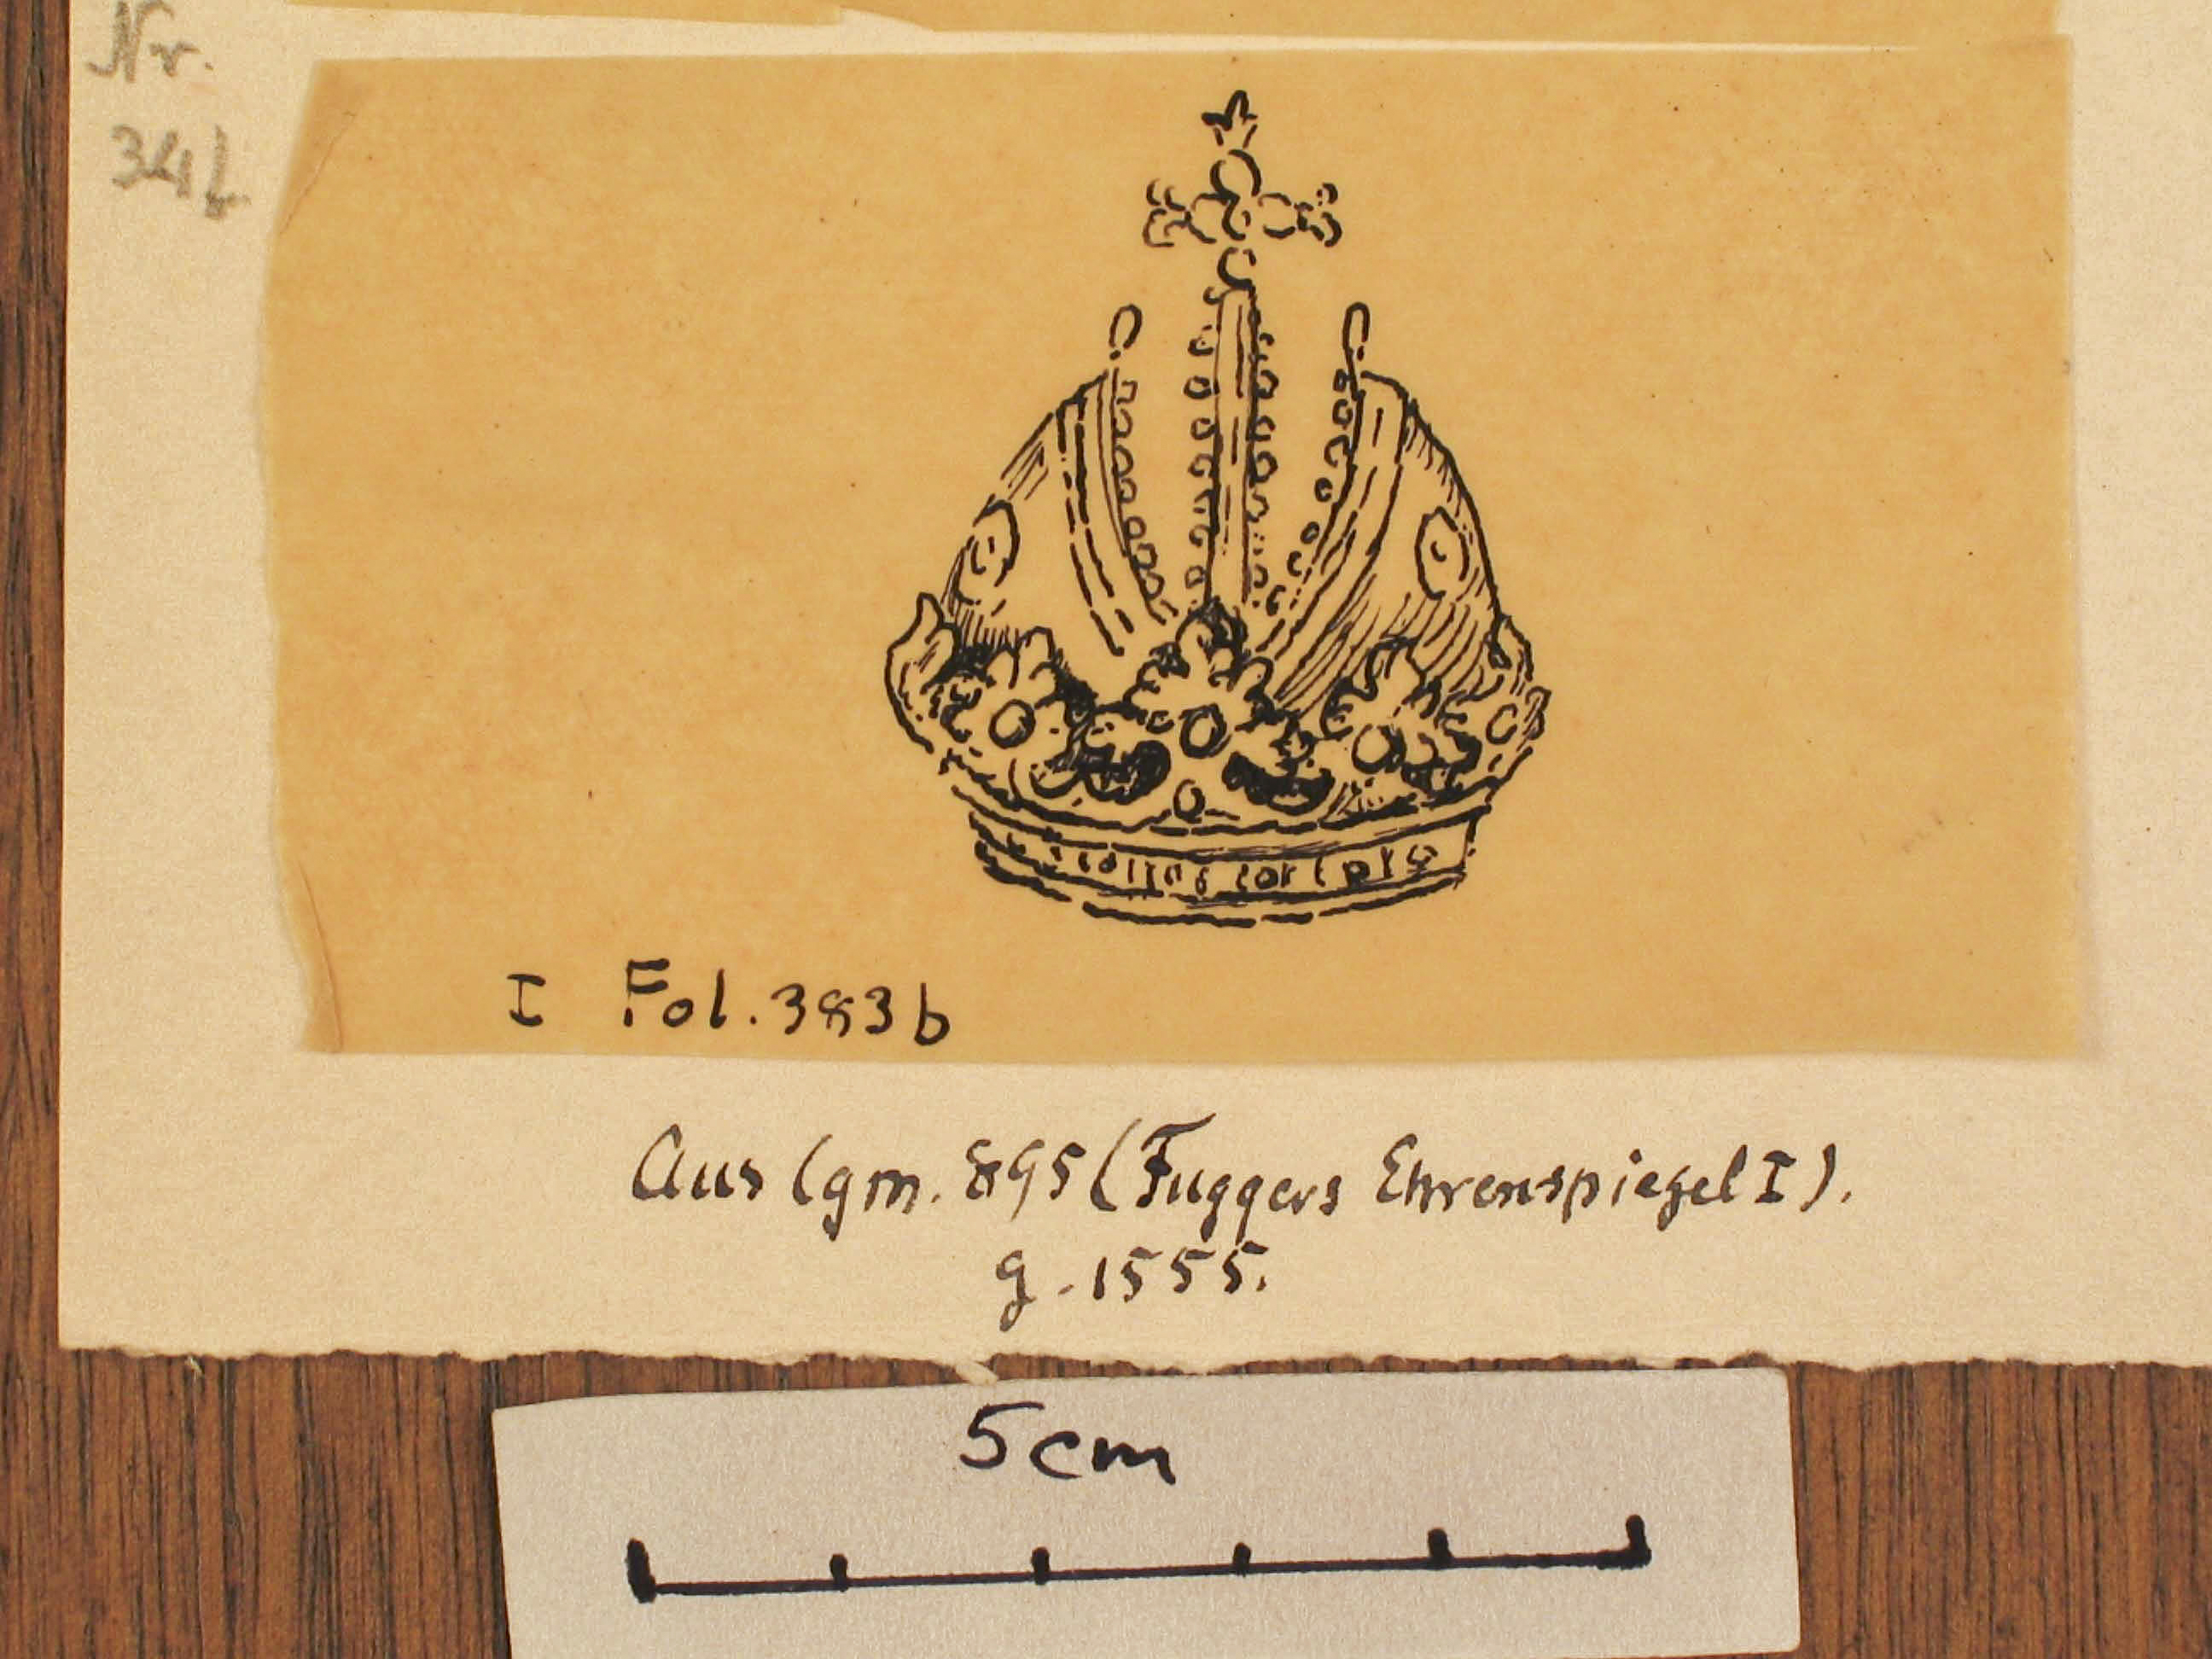 Nr.
I Fol. 383b
Aus Cgm. 895 (Fuggers Ehrenspiegel I).
g. 1555.
5cm